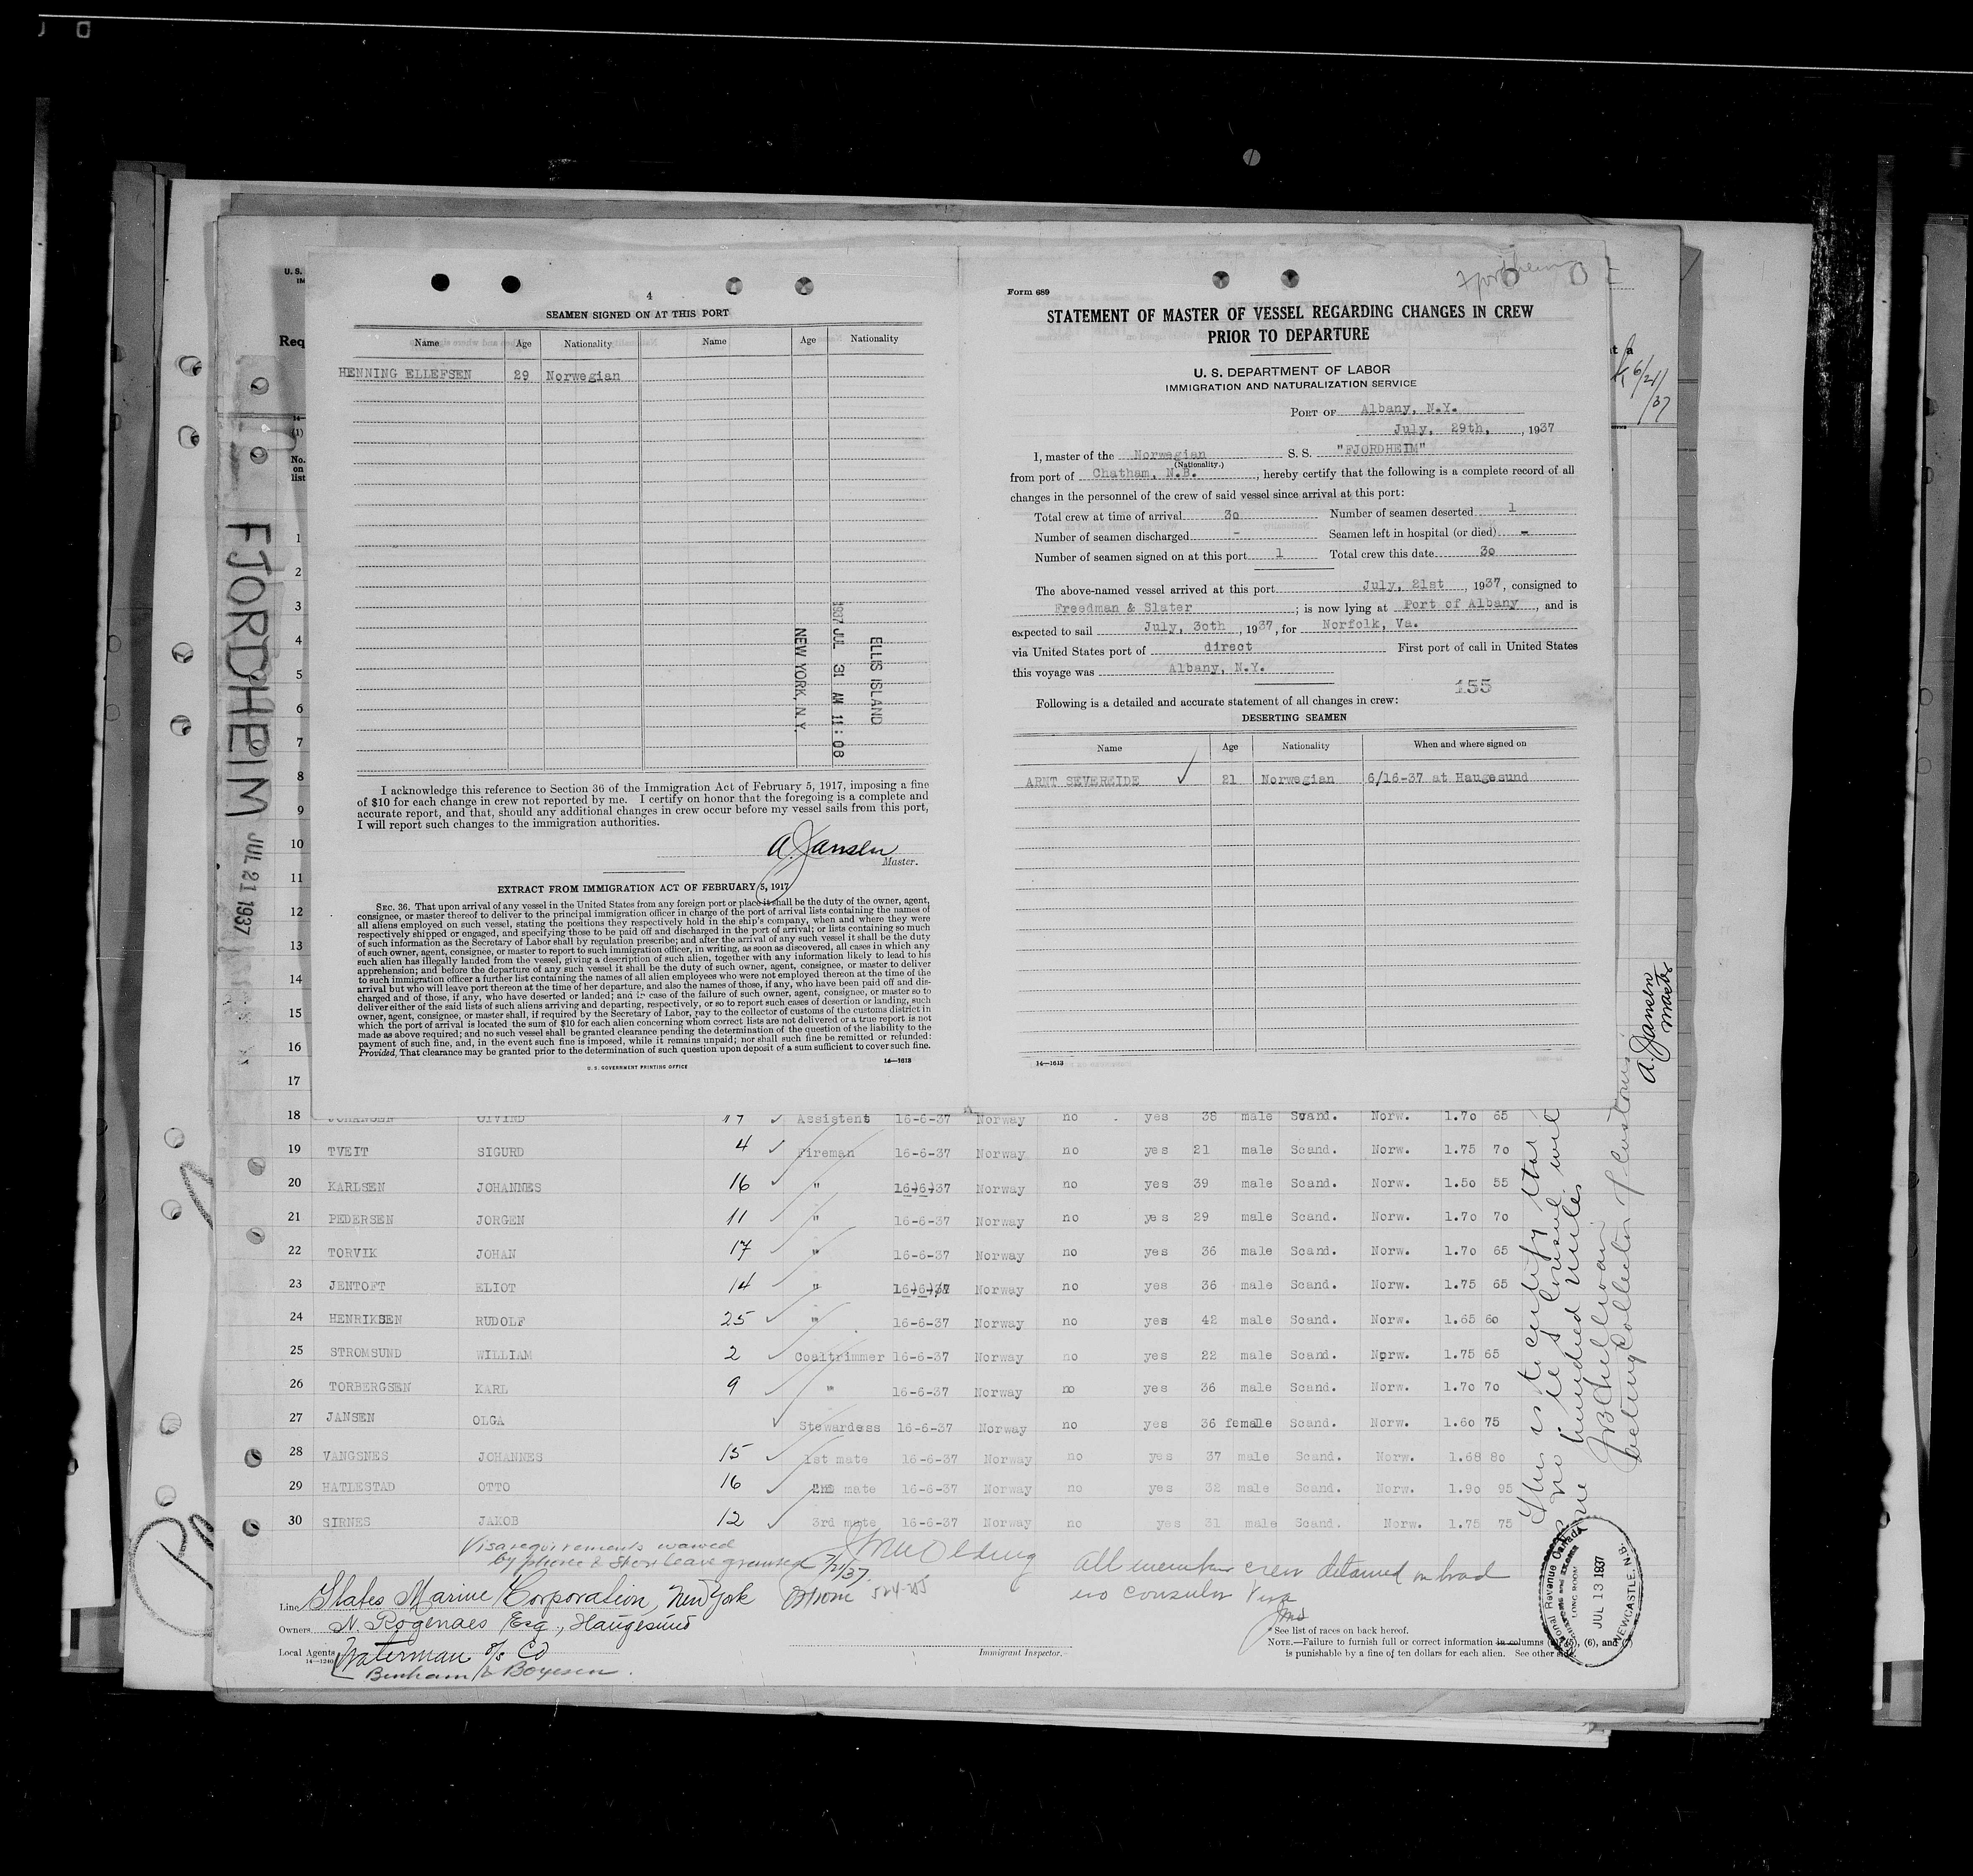 4
SEAMEN SIGNED ON AT THIS PORT
Name Age Nationality Name Age Nationality
HENNING ELLEFSEN 29 Norwegian
ELLIS ISLAND
1937 JUL 31 AM 11:08
NEW YORK, N.Y.
I acknowledge this reference to Section 36 of the Immigration Act of February 5, 1917, imposing a fine
of $10 for each change in crew not reported by me. I certify on honor that the foregoing is a complete and
accurate report, and that, should any additional changes in crew occur before my vessel sails from this port,
I will report such changes to the immigration authorities.
A. Jansen
Master.
EXTRACT FROM IMMIGRATION ACT OF FEBRUARY 5, 1917
SEC. 36. That upon arrival of any vessel in the United States from any foreign port or place it shall be the duty of the owner, agent,
consignee, or master thereof to deliver to the principal immigration officer in charge of the port of arrival lists containing the names of
all aliens employed on such vessel, stating the positions they respectively hold in the ship's company, when and where they were
respectively shipped or engaged, and specifying those to be paid off and discharged in the port of arrival; or lists containing so much
of such information as the Secretary of Labor shall by regulation prescribe; and after the arrival of any such vessel it shall be the duty
of such owner, agent, consignee, or master to report to such immigration officer, in writing, as soon as discovered, all cases in which any
such alien has illegally landed from the vessel, giving a description of such alien, together with any information likely to lead to his
apprehension; and before the departure of any such vessel it shall be the duty of such owner, agent, consignee, or master to deliver
to such immigration officer a further list containing the names of all alien employees who were not employed thereon at the time of the
arrival but who will leave port thereon at the time of her departure, and also the names of those, if any, who have been paid off and dis-
charged and of those, if any, who have deserted or landed; and in case of the failure of such owner, agent, consignee, or master so to
deliver either of the said lists of such aliens arriving and departing, respectively, or so to report such cases of desertion or landing, such
owner, agent, consignee, or master shall, if required by the Secretary of Labor, pay to the collector of customs of the customs district in
which the port of arrival is located the sum of $10 for each alien concerning whom correct lists are not delivered or a true report is not
made as above required; and no such vessel shall be granted clearance pending the determination of the question of the liability to the
payment of such fine, and, in the event such fine is imposed, while it remains unpaid; nor shall such fine be remitted or refunded:
Provided, That clearance may be granted prior to the determination of such question upon deposit of a sum sufficient to cover such fine.
U. S. GOVERNMENT PRINTING OFFICE 14—1613
Fjordheim
Form 689
STATEMENT OF MASTER OF VESSEL REGARDING CHANGES IN CREW
PRIOR TO DEPARTURE
U. S. DEPARTMENT OF LABOR
IMMIGRATION AND NATURALIZATION SERVICE
PORT OF Albany, N.Y.
July, 29th, , 1937
I, master of the Norwegian S. S. "FJORDHEIM"
(Nationality.)
from port of Chatham, N.B. , hereby certify that the following is a complete record of all
changes in the personnel of the crew of said vessel since arrival at this port:
Total crew at time of arrival 30 Number of seamen deserted 1
Number of seamen discharged - Seamen left in hospital (or died) -
Number of seamen signed on at this port 1 Total crew this date 30
The above-named vessel arrived at this port July, 21st , 1937, consigned to
Freedman & Slater ; is now lying at Port of Albany , and is
expected to sail July, 30th , 1937, for Norfolk, Va.
via United States port of direct First port of call in United States
this voyage was Albany, N.Y.
155
Following is a detailed and accurate statement of all changes in crew:
DESERTING SEAMEN
Name Age Nationality When and where signed on
ARNT SEVEREIDE ✓ 21 Norwegian 6/16-37 at Haugesund
14—1613
U. S.
Req
(1)
No.
on
list
FJORDHEIM
JUL 21 1937
6/21/37
1
2
3
4
5
6
7
8
9
10
11
12
13
14
15
16
17
18 JOHANSEN OIVIND 17 ✓ Assistent 16-6-37 Norway no yes 38 male Scand. Norw. 1.70 65
19 TVEIT SIGURD 4 ✓ Fireman 16-6-37 Norway no yes 21 male Scand. Norw. 1.75 70
20 KARLSEN JOHANNES 16 ✓ " 16-6-37 Norway no yes 39 male Scand. Norw. 1.50 55
21 PEDERSEN JORGEN 11 ✓ " 16-6-37 Norway no yes 29 male Scand. Norw. 1.70 70
22 TORVIK JOHAN 17 ✓ " 16-6-37 Norway no yes 36 male Scand. Norw. 1.70 65
23 JENTOFT ELIOT 14 ✓ " 16-6-37 Norway no yes 36 male Scand. Norw. 1.75 65
24 HENRIKSEN RUDOLF 25 ✓ " 16-6-37 Norway no yes 42 male Scand. Norw. 1.65 60
25 STROMSUND WILLIAM 2 ✓ Coaltrimmer 16-6-37 Norway no yes 22 male Scand. Norw. 1.75 65
26 TORBERGSEN KARL 9 ✓ " 16-6-37 Norway no yes 36 male Scand. Norw. 1.70 70
27 JANSEN OLGA ✓ Stewardess 16-6-37 Norway no yes 36 female Scand. Norw. 1.60 75
28 VANGSNES JOHANNES 15 ✓ 1st mate 16-6-37 Norway no yes 37 male Scand. Norw. 1.68 80
29 HATLESTAD OTTO 16 ✓ 2nd mate 16-6-37 Norway no yes 32 male Scand. Norw. 1.90 95
30 SIRNES JAKOB 12 ✓ 3rd mate 16-6-37 Norway no yes 31 male Scand. Norw. 1.75 75
Visa requirements waived
by phone & Shore leave granted 7/21/37.
All members crew detained on board
no consular visa
Line States Marine Corporation, New York
Owners N. Rogenaes Esq., Haugesund
Local Agents Waterman S/S Co
14—1240
Benham & Boyesen.
Immigrant Inspector.
* See list of races on back hereof.
NOTE.—Failure to furnish full or correct information in columns (5), (6), and
is punishable by a fine of ten dollars for each alien. See other side.
This is to certify that
no U S Consul within
one hundred miles
Acting Collector of Customs
A. Jansen
master
National Revenue Canada
LONG ROOM
JUL 13 1937
NEWCASTLE, N.B.